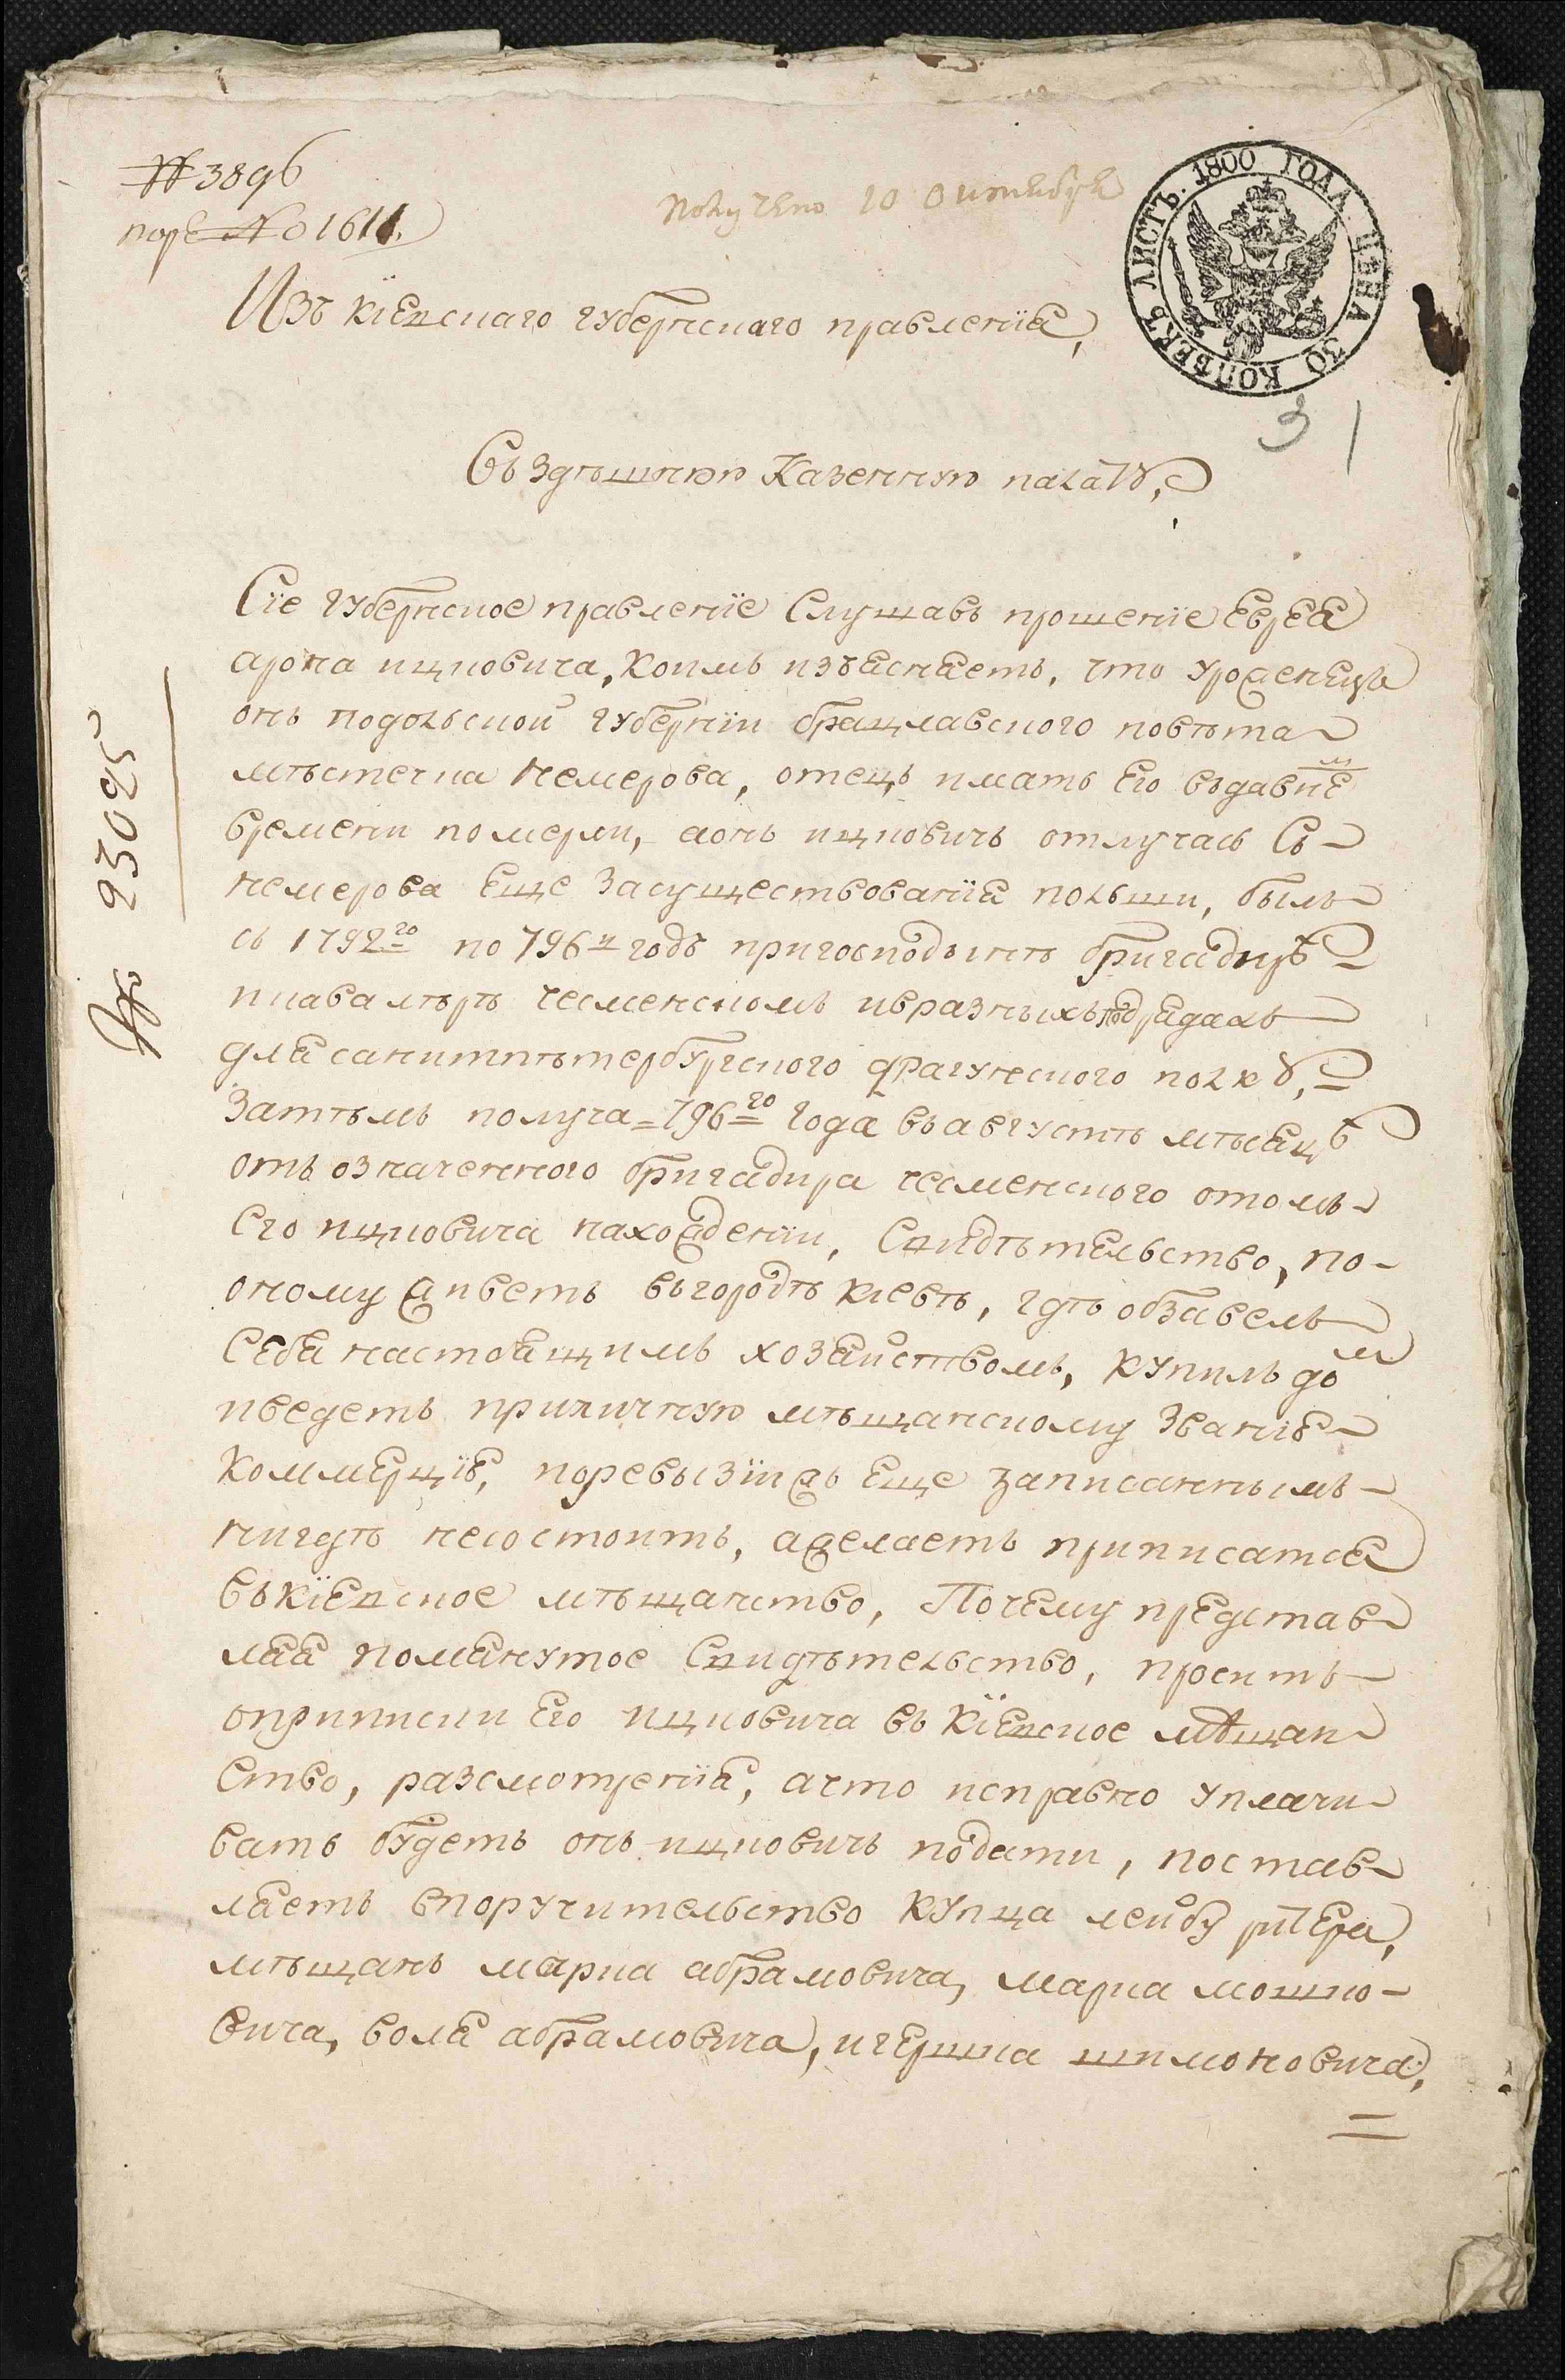 № 3896
по ре № 1611.
получено 10 октября
ЛИСТЪ. 1800 ГОДА ЦѢНА 30 КОПѢЕКЪ
Изъ кіевскаго губернскаго правленія,
3 1
Въ здѣшнюю Казенную палату,
№ 23025
Сіе губернское правленіе слушавъ прошеніе еврея
арона ицковича, коимъ изъясняетъ, что уроженецъ
онъ подольской губерніи брацлавского повѣта
мѣстечка немерова, отецъ и мать его въ давнемъ
времени померли, а онъ ицковичъ отлучась съ
немерова еще за существованія польши, былъ
съ 1792го по 796й годъ при господинѣ бригадирѣ
и кавалѣрѣ чесменскомъ и в разныхъ подрядахъ
для санктпѣтербургского драгунского полку,
Затѣмъ получа 796го года въ августѣ мѣсяцѣ
отъ означенного бригадира чесменского о томъ
его ицковича нахожденіи, свидѣтельство, по
оному живетъ въ городѣ кіевѣ, гдѣ обзавелъ
себя настоящимъ хозяйствомъ, купилъ домъ
и ведетъ приличную мѣщанскому званію
коммерцію, по ревизіи жъ еще записаннымъ
нигдѣ не состоитъ, а желаетъ приписатся
въ кіевское мѣщанство, Почему представ
ляя помянутое свидѣтельство, проситъ
о приписки его ицковича въ кіевское мѣщан
ство, разсмотренія, а что исправно уплачи
вать будетъ онъ ицковичъ подати, постав
ляетъ в поручительство купца лейбу
мѣщанъ марка абрамовича, марка мошко
вича, воля абрамовича, и гершка шимоновича,